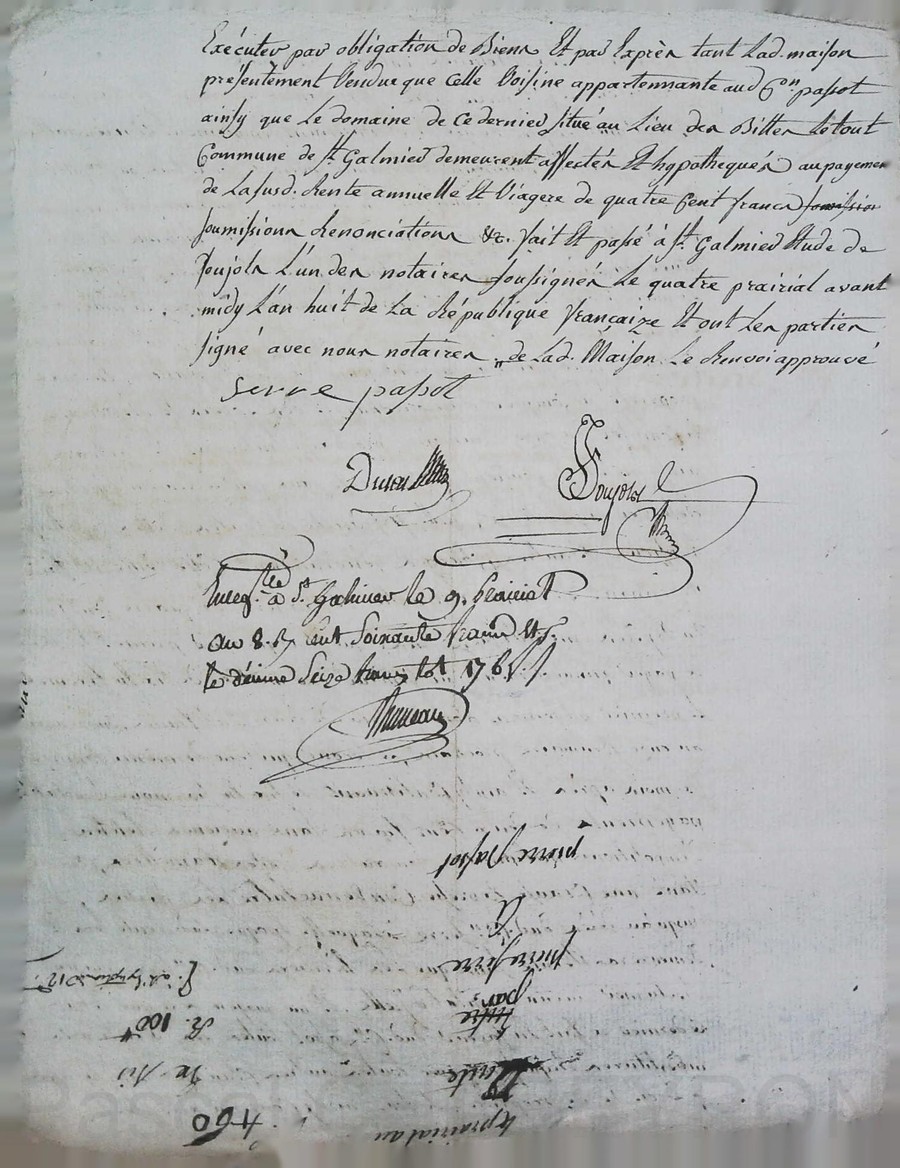 Exécuter par obligation de Biens Et par Exprès tant Lad. maison
présentement Vendue que Celle Voisine appartennante aud Cen passot
ainsy que Le domaine de Ce dernier situé au Lieu des Bittes Le tout
Commune de st. Galmier demeurent affectés Et hypothequés au payemen
de Lasusd. Rente annuelle Et Viagere de quatre Cent francs soumission
soumissions Renonciations &c. fait Et passé à st. Galmier Etude de
soujols L'un des notaires soussignés Le quatre prairial avant
midy L'an huit de La République française Et ont Les parties
signé avec nous notaires " de Lad. Maison Le Renvoi approuvé
Serre passot
Soujols
Enregtré à St. Galmier le 9. Prairial
au 8. R/ cent Soixante francs et p.
le dixime Seize francs tot 176
4 prairial an
460
Vente
par
pierre serre
à
pierre passot
R. 100